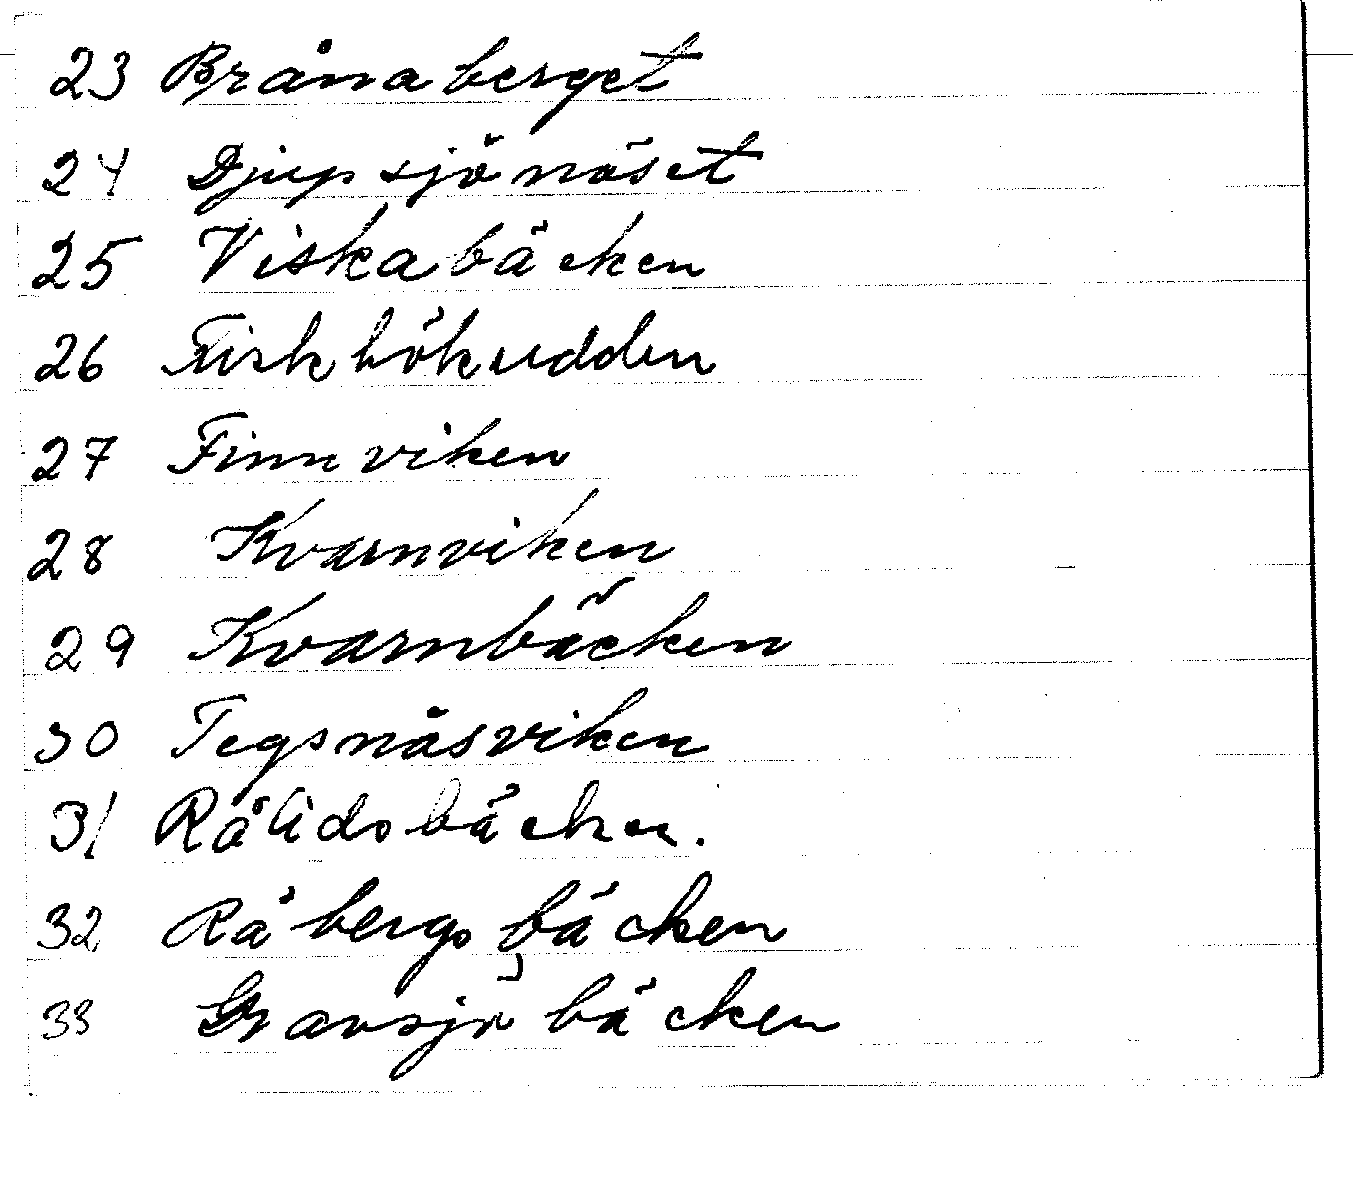 23 Brånaberget
24 Djupsjönäset
25 Viskabäcken
26 Fiskhökudden
27 Finnviken
28 Kvarnviken
29 Kvarnbäcken
30 Tegsnäsviken
31 Rålidsbäcken.
32 Råbergsbäcken
33 Gravsjöbäcken